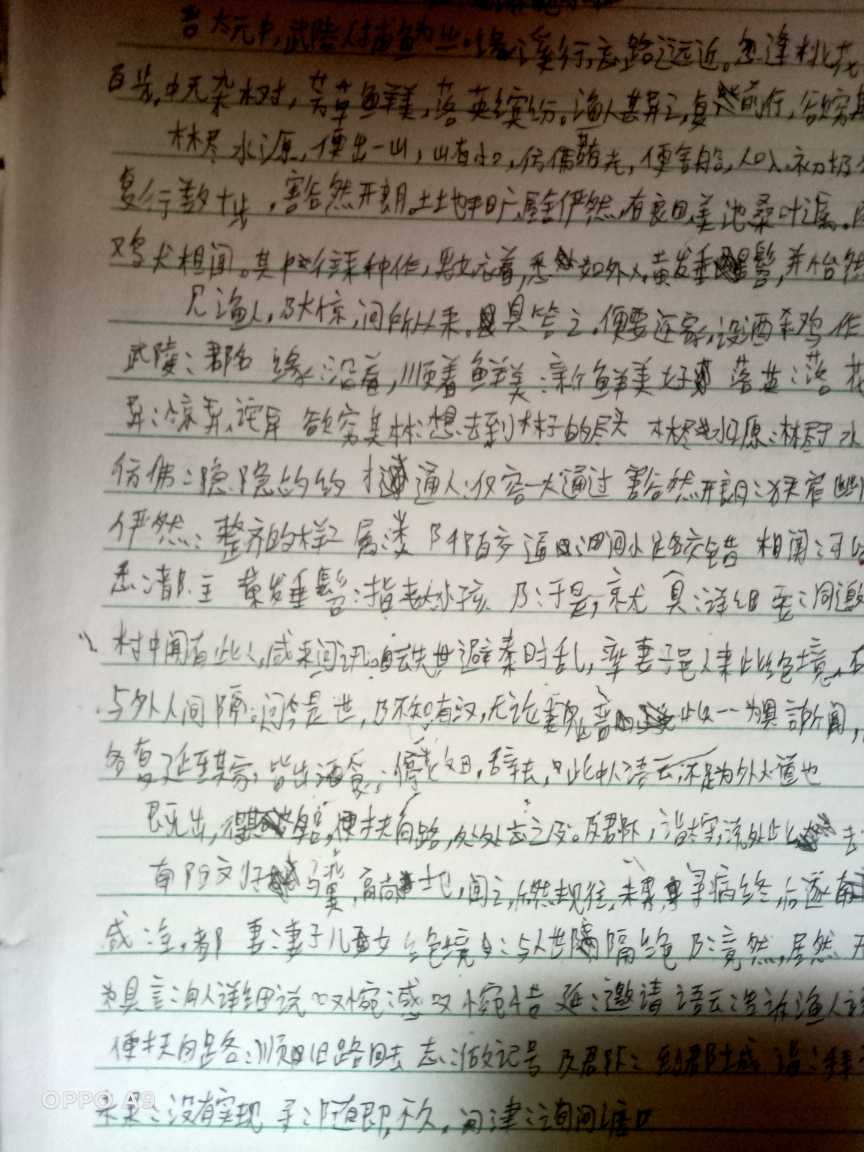 晋太元中,武陵人捕鱼为业。缘溪行,忘路之远近。忽逢桃花
百步,中无杂树,芳草鲜美,落英缤纷。渔人甚异之,复前行,欲穷其
林尽水源,便出一山,山有小口,仿佛有光,便舍船,入口。初极
复行数十步,豁然开朗。土地平旷,屋舍俨然。有良田,美池桑竹之属。
鸡犬相闻。其中往来种作,男女衣着,悉如外人。黄发垂髫,并怡然
见渔人,乃大惊,问所从来。具答之,便要还家,设酒杀鸡作
武陵:郡名 缘:沿着,顺着 鲜美:新鲜美好 落英:落花
异:惊异,诧异 欲穷其林:想去到林子的尽头 林尽水源:林尽 水
仿佛:隐隐约约 才通人:仅容一人通过 豁然开朗:狭窄幽
俨然:整齐的样子 属:类 阡陌交通:田间小路交错 相闻:可以
悉:都 黄发垂髫:指老人小孩 乃:于是,就 具:详细 要:同邀
村中闻有此人,咸来问讯。自云先世避秦时乱,率妻子邑人来此绝境,不
与外人间隔。问今是世,乃不知有汉,无论魏晋。此人一一为具言所闻,
各复延至其家,皆出酒食。停数日,辞去,此中人语云:不足为外人道也
既出,得其船,便扶向路,处处志之。及郡下,诣太守,说如此
南阳刘子骥,高尚士也,闻之,欣然规往,未果,寻病终,后遂
咸:全,都 妻子:妻子儿女 绝境:与人世隔绝 乃:竟然,居然
为具言:向人详细说 叹惋:感叹惋惜 延:邀请 语云:告诉渔人
便扶向路:顺旧路回去 志:做记号 及郡下:到郡城 诣:拜
未果:没有实现 寻:随即,不久 问津:询问渡口
OPPO A9